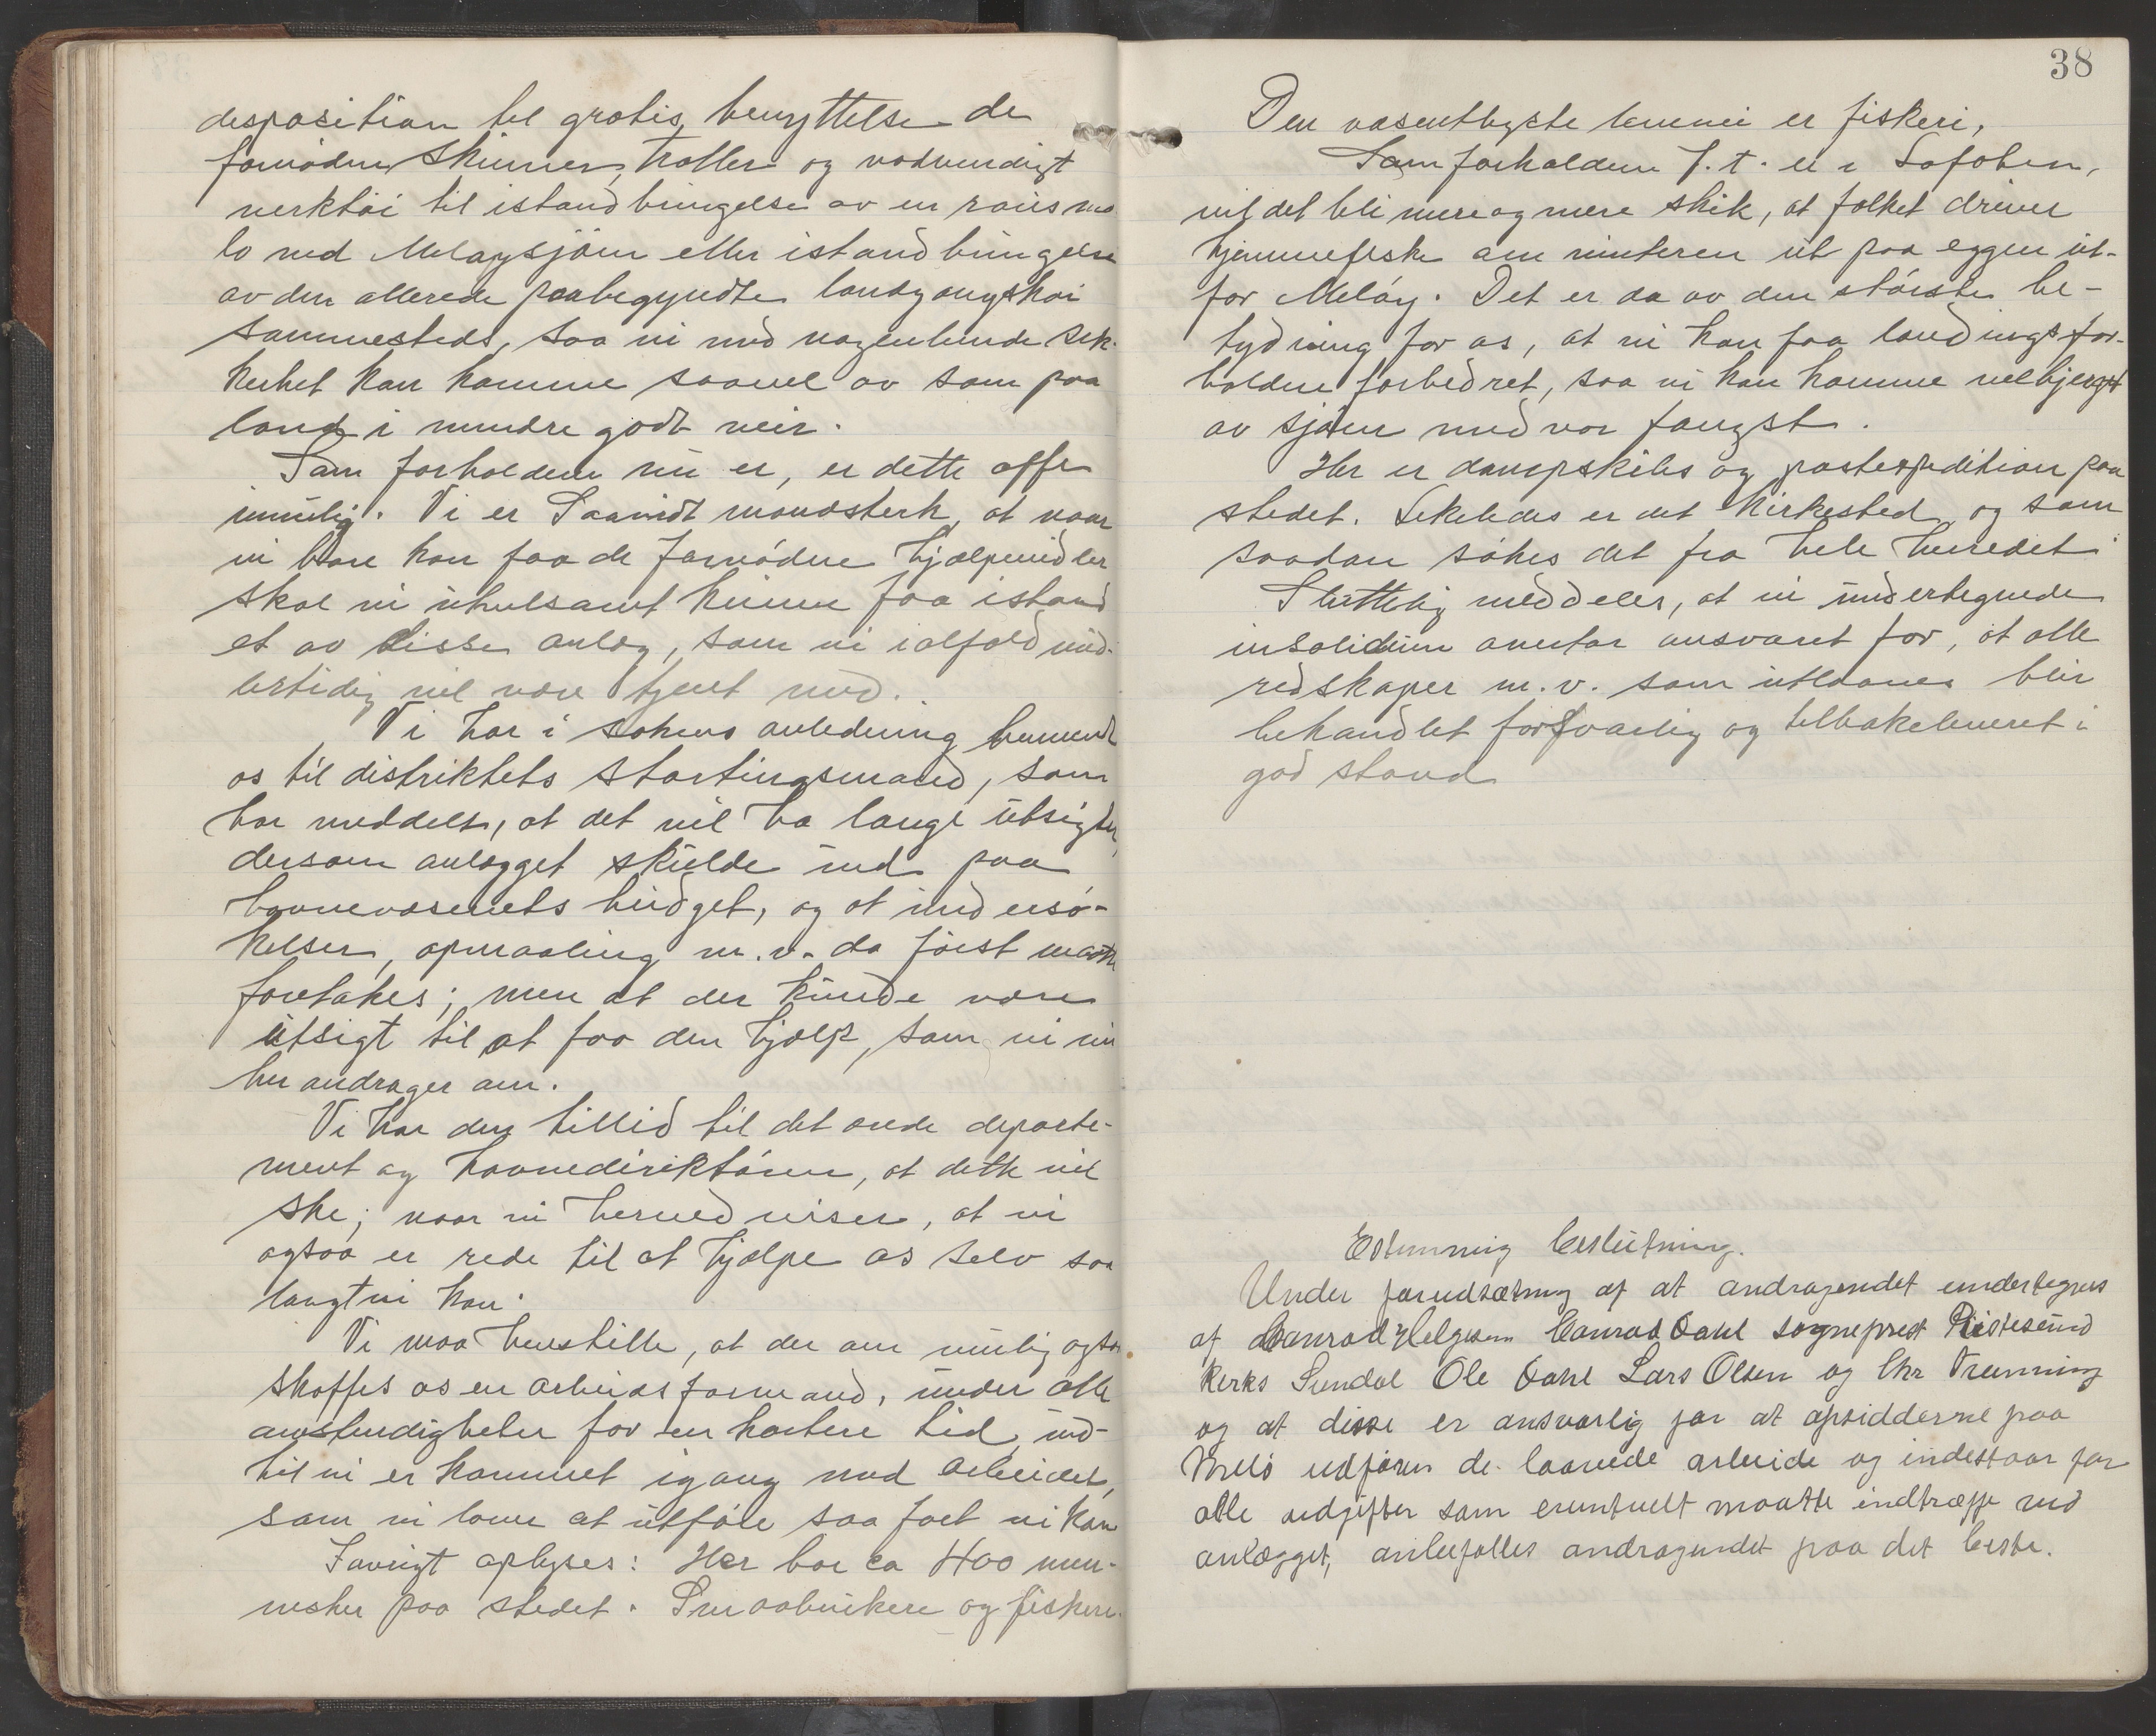 desposition til gratis benyttelse de
fornødne skinner, traller og nødvendigt
verktøi til istandbringelse av en røismo
lo ved Meløysjøen eller istandbringelse
av den allerede paabegyndte landgangskai
sammesteds, saa vi med nogenlunde sik-
kerhet kan komme saavel av som paa
land i mindre godt veir.
Som forholdene nu er, er dette ofte
umulig. Vi er saavidt mandsterk, at naar
vi bare kan faa de fornødne hjælpemidler
skal vi uhulsamt kunne faa istand
et av disse anlæg, som vi ialfald mid-
lertidig vil være tjent med.
Vi har i sakens anledning henvendt
os til distriktets stortingsmand, som
har meddelt, at det vil ha lange utsigter,
dersom anlægget skulde ind paa
havnevæsenets budget, og at undersø-
kelser, opmaaling m.v. da først maatte
foretakes; men at der kunde være
utsigt til at faa den hjælp, som vi nu
her andrager om.
Vi har den tillid til det ærede departe-
ment og havnedirektøren, at dette vil
ske; naar vi herved viser, at vi
ogsaa er rede til at hjælpe os selv saa
langt vi kan.
Vi maa henstille, at der om mulig ogsaa
skaffes os en arbeidsformand, under alle
omstendigheter for en kortere tid, ind-
til vi er kommet igang med arbeidet,
som vi lover at utføre saa fort vi kan
Iøvrigt oplyses: Her bor ca 400 men-
nesker paa stedet. Smaabrukere og fiskere.
38
Den væsentligste levevei er fiskeri,
Som forholdene f.t. er i Lofoten,
vil det bli mere og mere skik, at folket driver
hjemmefiske om vinteren ut paa eggen ut-
for Meløy. Det er da av den største be-
tydning for os, at vi kan faa landingsfor-
holdene forbedret, saa vi kan komme velbjerget
av sjøen med vor fangst.
Her er dampskibs og postexpedition paa
stedet. Likeledes er det kirkested og som
saadan søkes det fra hele herredet
Sluttelig meddeles, at vi undertegnede
insolidum overtar ansvaret for, at alle
redskaper m.v. som utlaanes blir
behandlet forsvarlig og tilbakeleveret i
god stand
Estemmig beslutning.
Under forudsætning af at andragendet undertegnes
af Conrad Helgesen Conrad Dahl sogneprest Ristesund
Kerks Sundal Ole Dahl Lars Olsen og Chr Trenning
og at disse er ansvarlig for at opsidderne paa
Melø udfører de lovede arbeide og indestaar for
alle udgifter som eventuelt maatte indtræffe ved
anlægget, anbefalles andragendet paa det beste.